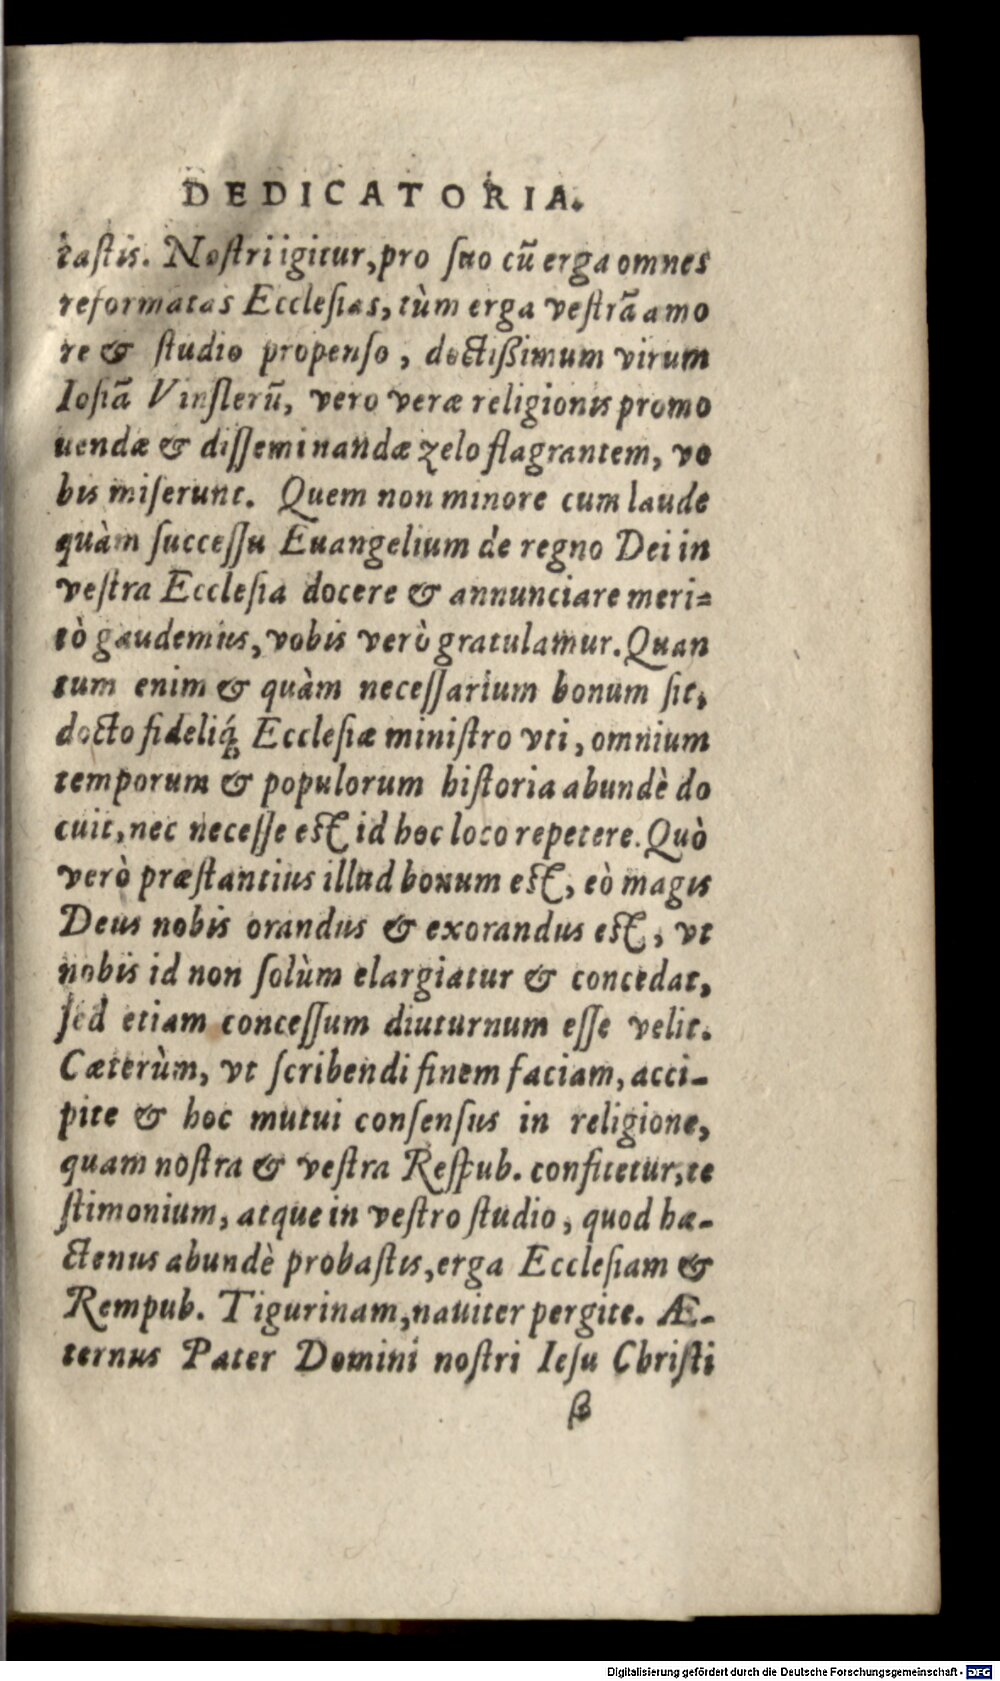 DEDICATORIA.
tastis. Nostri igitur, pro suo cū erga omnes
reformatas Ecclesias, tùm erga vestrā amo
re & studio propenso, doctißimum virum
Iosiā Vinslerū, vero veræ religionis promo
uendæ & disseminandæ zelo flagrantem, vo
bis miserunt. Quem non minore cum laude
quàm successu Euangelium de regno Dei in
vestra Ecclesia docere & annunciare meri=
tò gaudemus, vobis verò gratulamur. Quan
tum enim & quàm necessarium bonum sit,
docto fideliq́; Ecclesiæ ministro vti, omnium
temporum & populorum historia abundè do
cuit, nec necesse est id hoc loco repetere. Quò
verò præstantius illud bonum est, eò magis
Deus nobis orandus & exorandus est, vt
nobis id non solùm elargiatur & concedat,
sed etiam concessum diuturnum esse velit.
Cæterùm, vt scribendi finem faciam, acci-
pite & hoc mutui consensus in religione,
quam nostra & vestra Respub. confitetur, te
stimonium, atque in vestro studio, quod ha-
ctenus abundè probastis, erga Ecclesiam &
Rempub. Tigurinam, nauiter pergite. Æ-
ternus Pater Domini nostri Iesu Christi
β
Digitalisierung gefördert durch die Deutsche Forschungsgemeinschaft - DFG